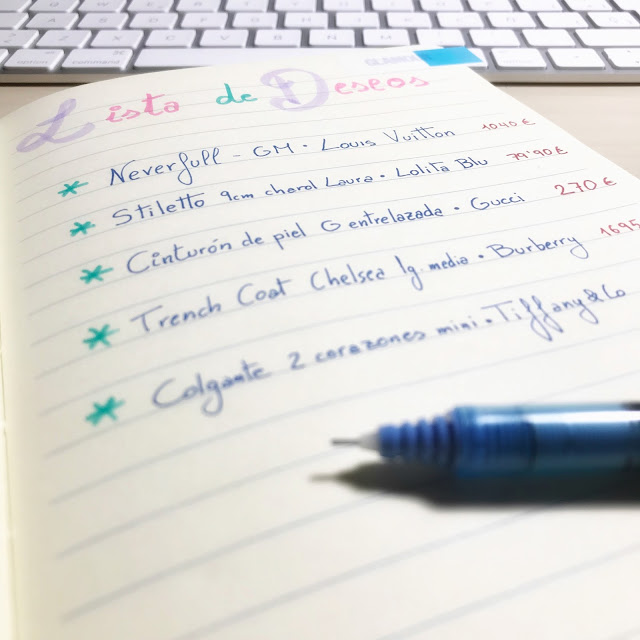 Lista de Deseos
* Neverfull - GM · Louis Vuitton 1040 €
* Stiletto 9cm charol Laura · Lolita Blu 79'90 €
* Cinturón de piel G entrelazada · Gucci 270 €
* Trench Coat Chelsea lg. media · Burberry 1695
* Colgante 2 corazones mini · Tiffany & Co